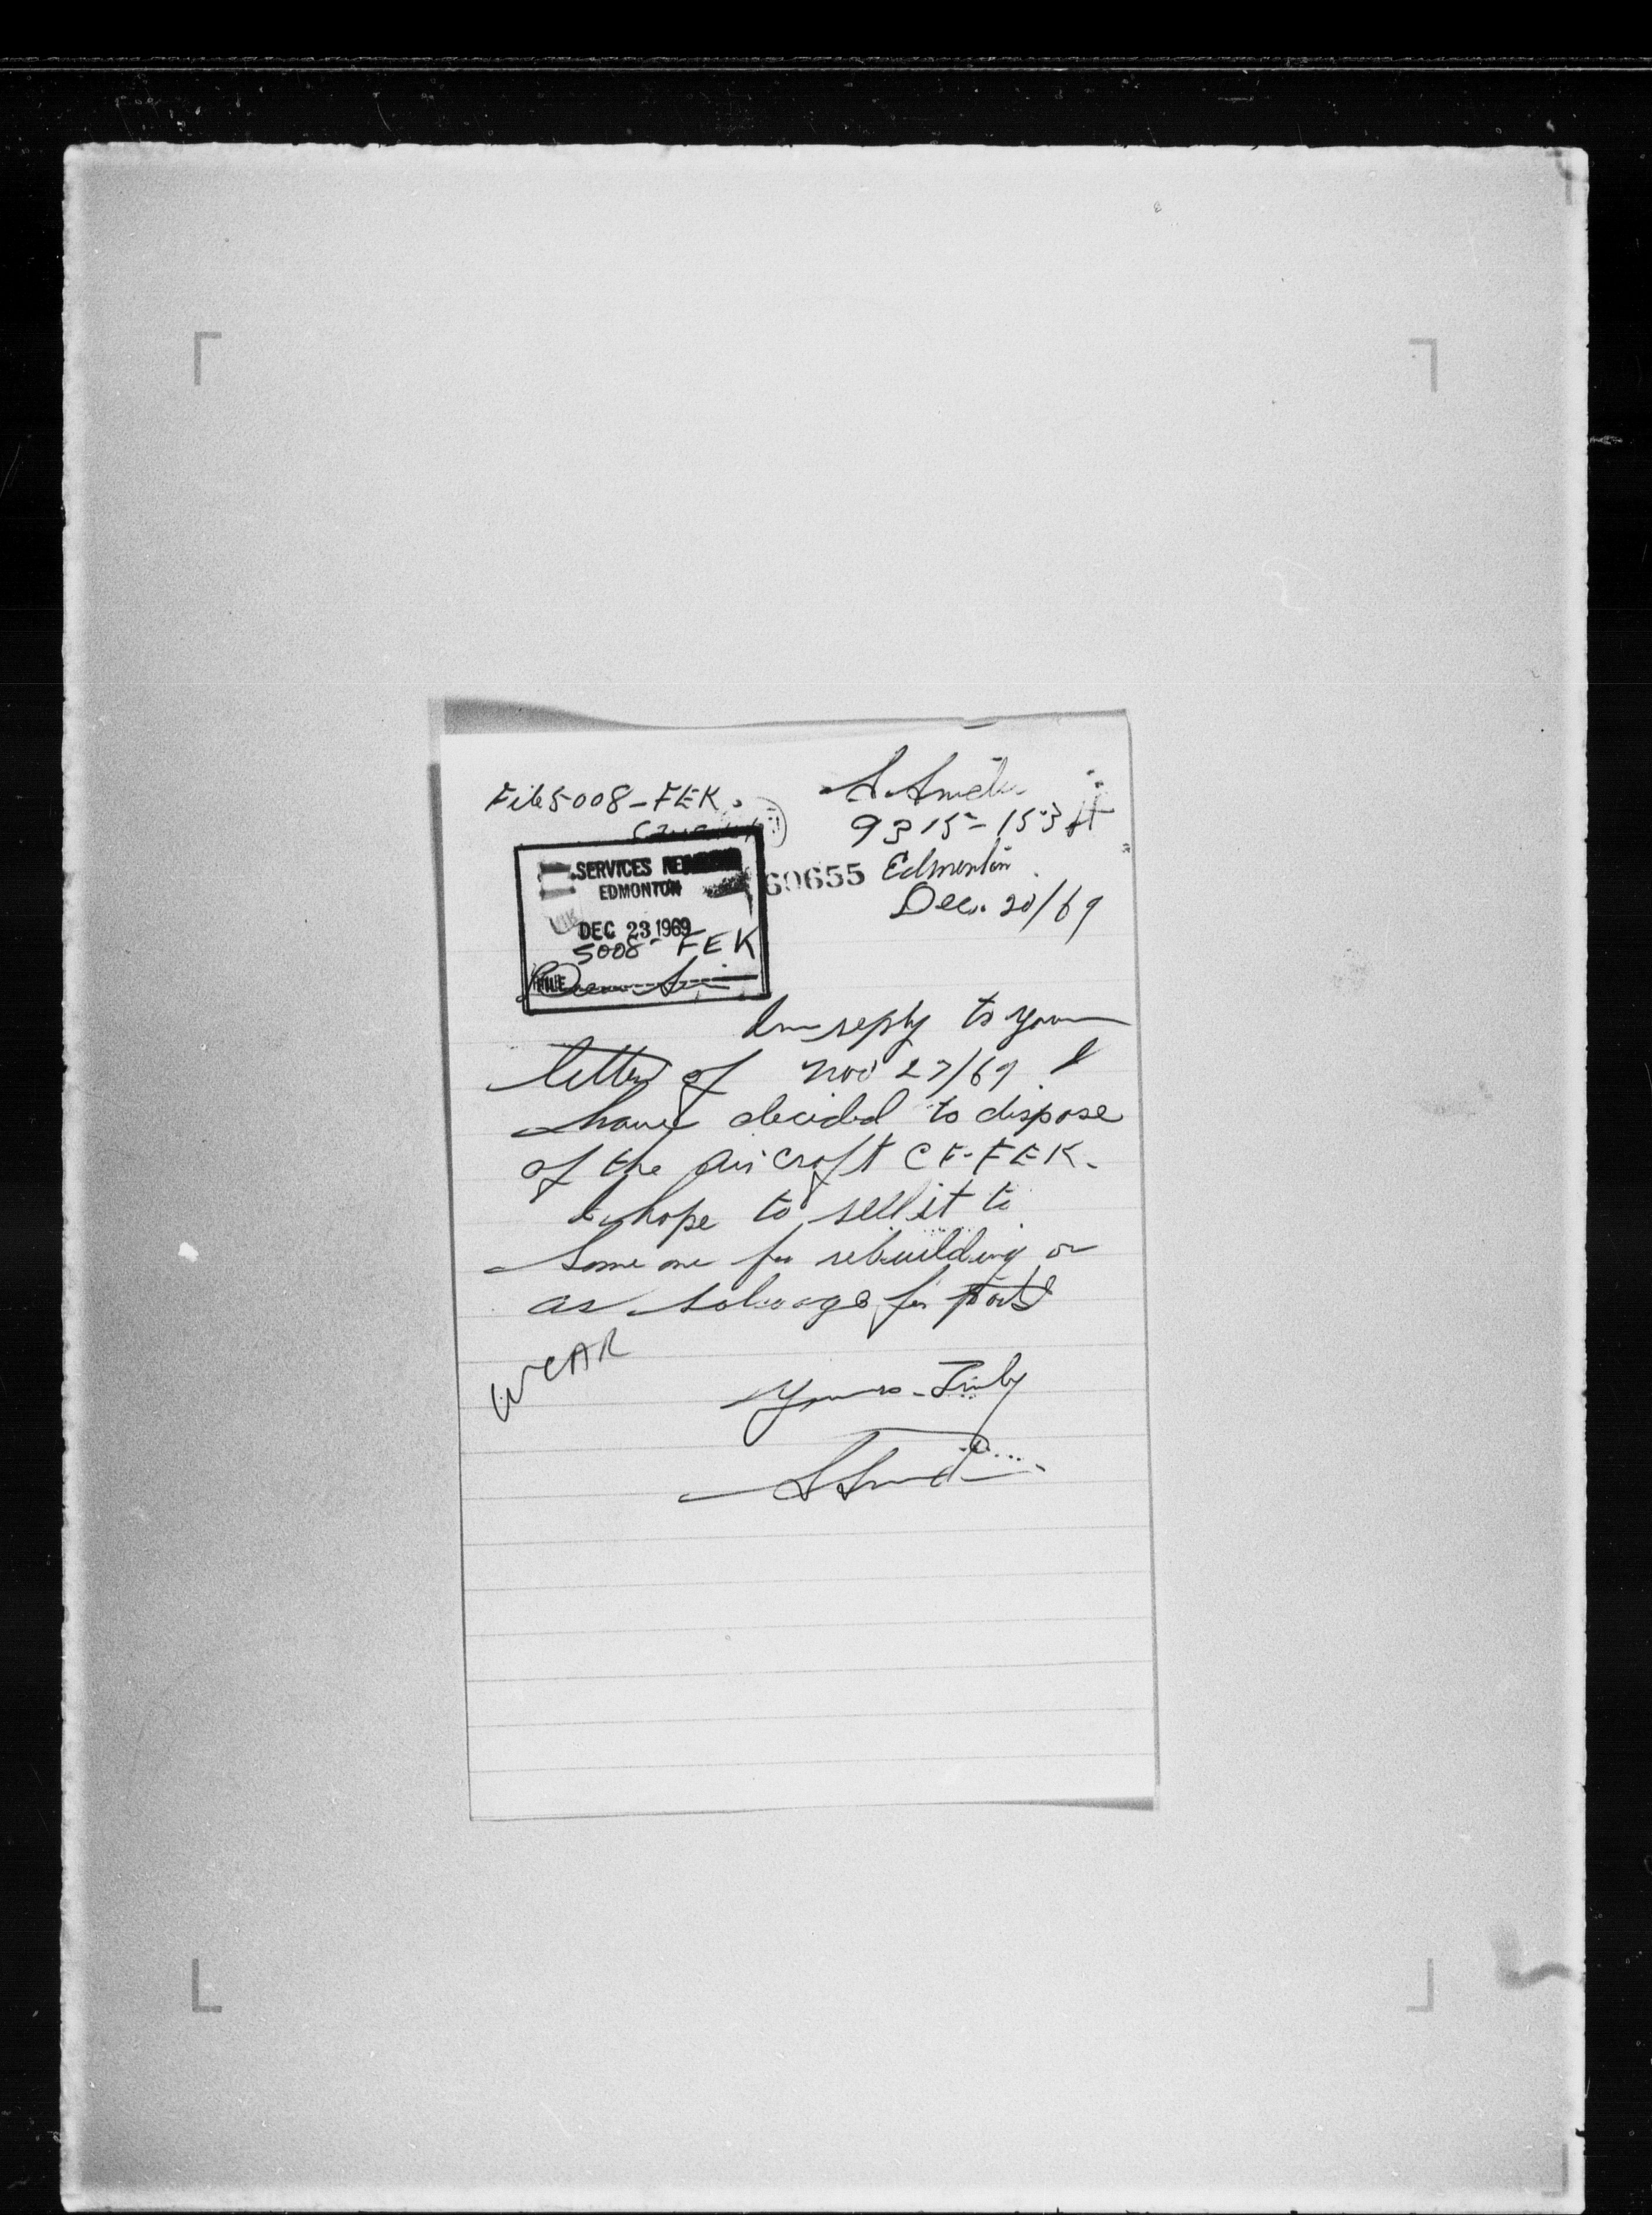 File 5008-FEK.
9315-153 st
SERVICES
EDMONTON
60655 Edmonton
Dec. 20/69
DEC 23 1969
5008- FEK
FILE
In reply to your
letter of Nov 27/69 I
have decided to dispose
of the Aircraft CF-FEK.
I hope to sell it to
some one for rebuilding or
as salvage for parts
WCAR
Yours Truly